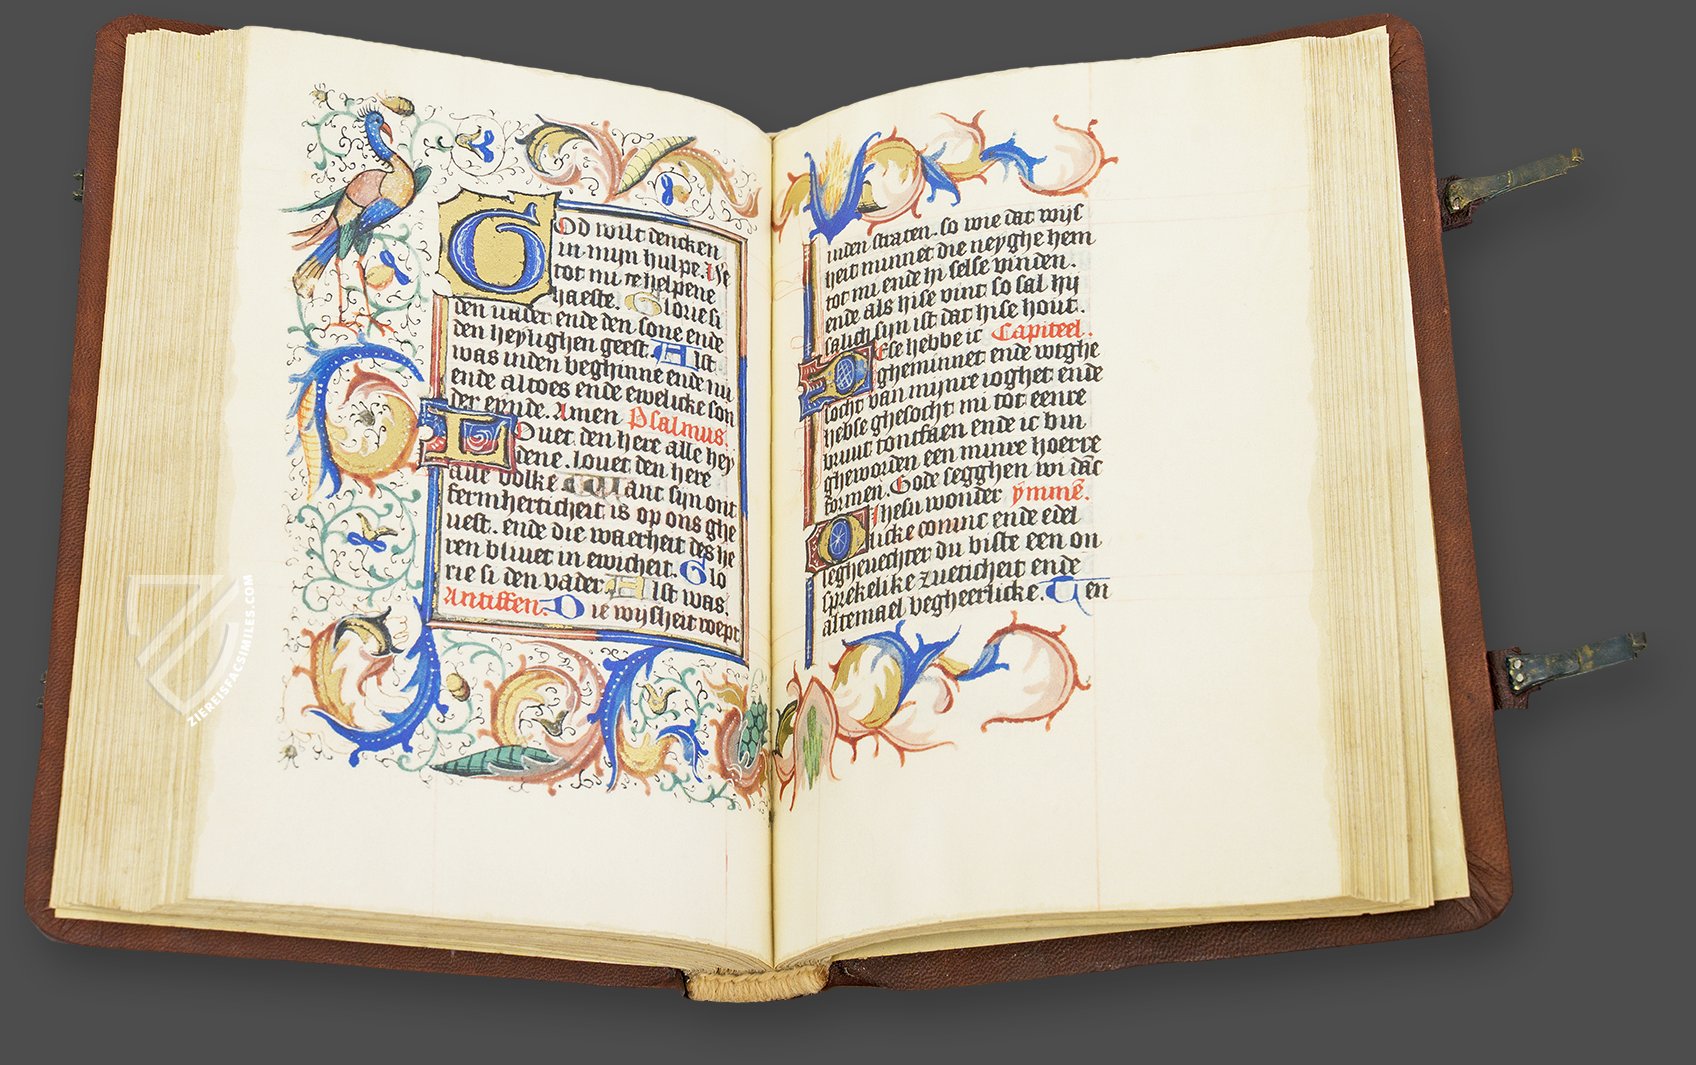 God wilt dencken
in mijn hulpe. He
tot mi te helpene
haeste. Glorie si
den vader ende den sone ende
den heylighen geest. Alst
was inden beghinne ende nu
ende altoes ende ewelicke son
der eynde. Amen Psalmus.
Louet den here alle hey
dene. louet den here
alle volke Want sijn ont
fermherticheit is op ons ghe
uest. ende die waerheit des he
ren bliuet in ewicheit. Glo
rie si den vader Alst was.
Antiffen. Die wijsheit roept
inden straten. so wie dat wijs
heit minnet die neyghe hem
tot mi ende hi selse vinden.
ende als hise vint so sal hij
salich sijn ist dat hise hout.
Ese hebbe ic Capiteel.
gheminnet ende wtghe
socht van mijnre ioghet ende
hebse ghesocht mi tot eenre
bruut tontfaen ende ic bin
gheworden een minre hoerre
formen. Gode segghen wi dac
Ihesu wonder ymme.
licke comut ende edel
leghevechter du biste een on
sprekelike zueticheit ende
altemael begheerlicke. Ten
ZIEREISFACSIMILES.COM